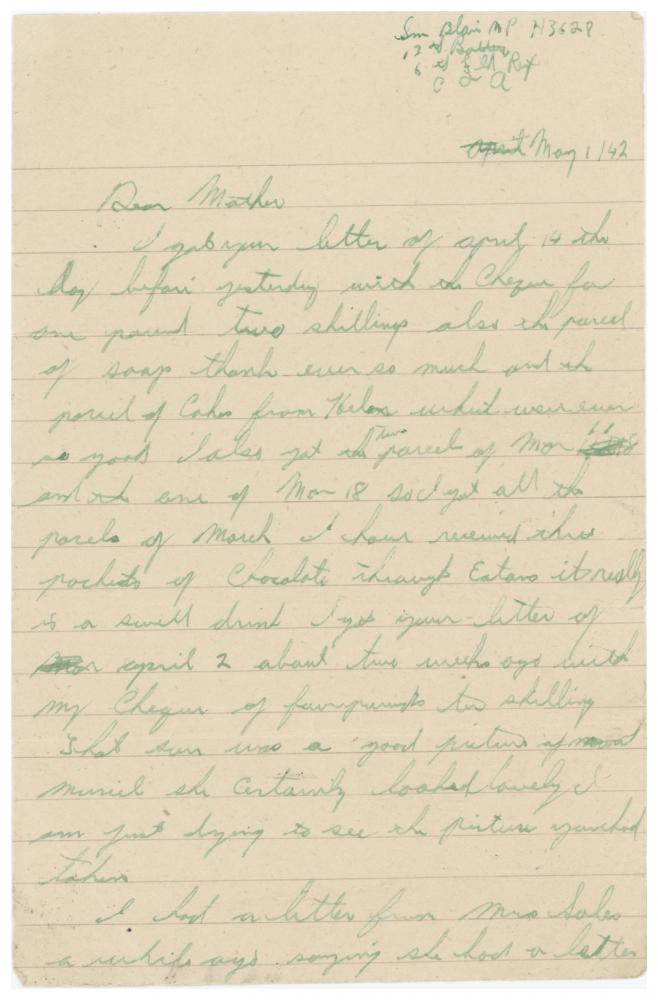 Gnr Blair MP H3628
13th Battery
6th Fld Reg
C O A
April May 1/42
Dear Mother
I got your letter of april 14 the
day before yesterday with the Cheque for
one pound two shillings also the parcel
of soap thank ever so much and the
parcel of Cake from Helen which were ever
so good I also got the two parcels of Mar 11
and the one of Mar 18 so I got all the
parcels of March I have received three
packets of Chocolate through Eatons it really
is a swell drink I got your letter of
april 2 about two weeks ago with
my Cheque of four pounds ten shilling
That sure was a good picture of
Muriel she certainly looked lovely I
am just dying to see the picture you had
taken
I had a letter from Mrs Sales
a while ago saying she had a letter